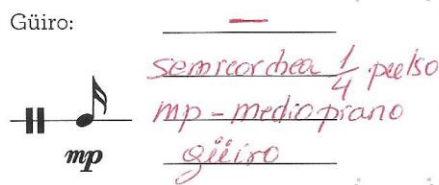 Güiro:
—
semicorchea 1/4 pulso
mp - medio piano
mp
güiro